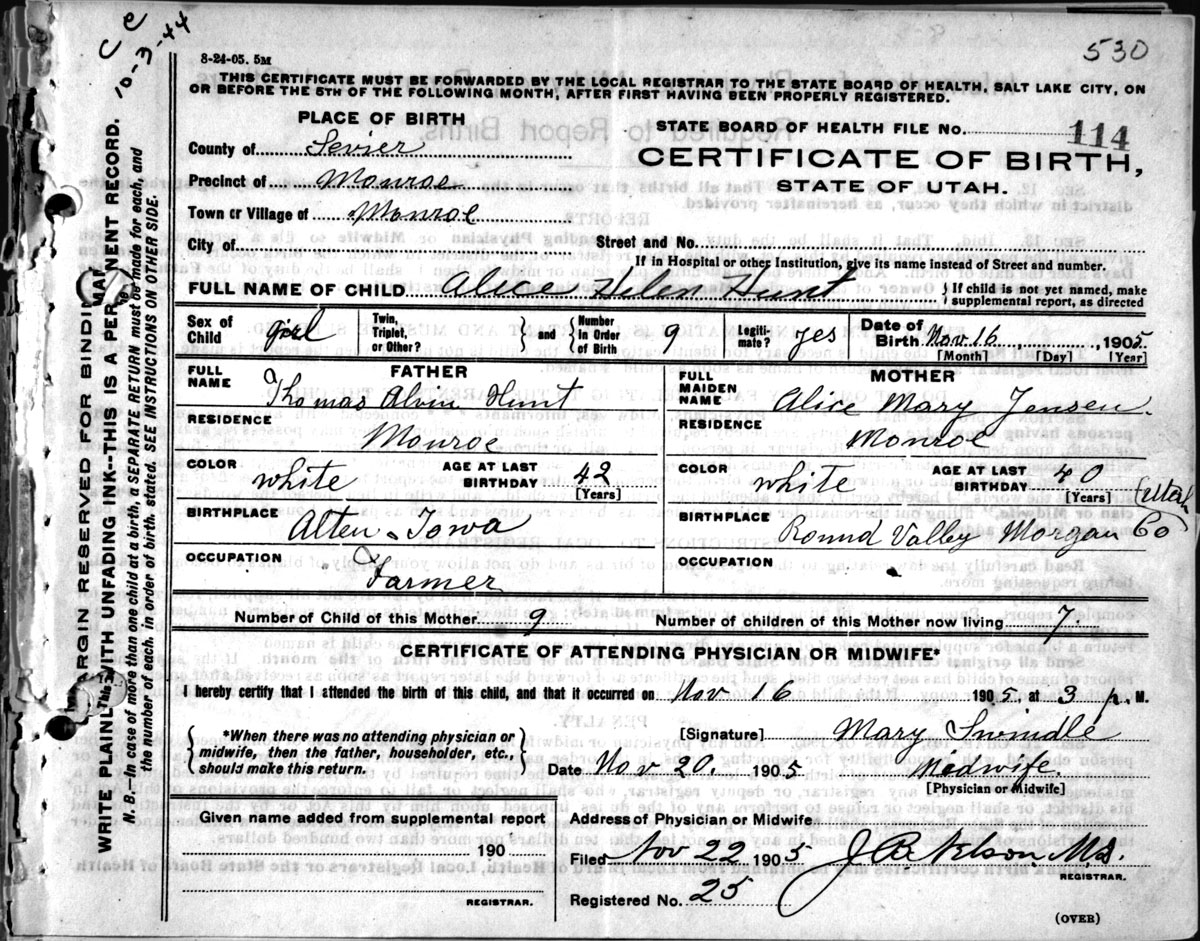 C C
10-3-44
530
8-24-05. 5M
THIS CERTIFICATE MUST BE FORWARDED BY THE LOCAL REGISTRAR TO THE STATE BOARD OF HEALTH, SALT LAKE CITY, ON
OR BEFORE THE 5TH OF THE FOLLOWING MONTH, AFTER FIRST HAVING BEEN PROPERLY REGISTERED.
PLACE OF BIRTH
STATE BOARD OF HEALTH FILE NO. 114
County of Sevier
CERTIFICATE OF BIRTH,
Precinct of Monroe
STATE OF UTAH.
Town or Village of Monroe
City of Street and No.
If in Hospital or other Institution, give its name instead of Street and number.
FULL NAME OF CHILD Alice Helen Hunt { If child is not yet named, make
supplemental report, as directed
Sex of Child girl Twin, Triplet, or Other? } and { Number in Order of Birth 9 Legiti-mate? yes Date of Birth Nov 16, 1905
[Month] [Day] [Year]
FATHER MOTHER
FULL NAME Thomas Alvin Hunt FULL MAIDEN NAME Alice Mary Jensen.
RESIDENCE Monroe RESIDENCE Monroe
COLOR white AGE AT LAST BIRTHDAY 42 COLOR white AGE AT LAST BIRTHDAY 40
[Years] [Years] (Utah)
BIRTHPLACE Alten Iowa BIRTHPLACE Round Valley Morgan Co
OCCUPATION Farmer OCCUPATION
Number of Child of this Mother 9 Number of children of this Mother now living 7
CERTIFICATE OF ATTENDING PHYSICIAN OR MIDWIFE*
I hereby certify that I attended the birth of this child, and that it occurred on Nov 16 1905, at 3 p. M.
{ *When there was no attending physician or
midwife, then the father, householder, etc.,
should make this return. }
[Signature] Mary Swindle
Date Nov 20 1905 Medwife.
[Physician or Midwife]
Given name added from supplemental report
Address of Physician or Midwife
190
Filed Nov 22 1905 J B Nelson Md.
REGISTRAR.
REGISTRAR.
Registered No. 25
(OVER)
MARGIN RESERVED FOR BINDING
WRITE PLAINLY WITH UNFADING INK--THIS IS A PERMANENT RECORD.
N. B.--In case of more than one child at a birth, a SEPARATE RETURN must be made for each, and
the number of each, in order of birth, stated. SEE INSTRUCTIONS ON OTHER SIDE.